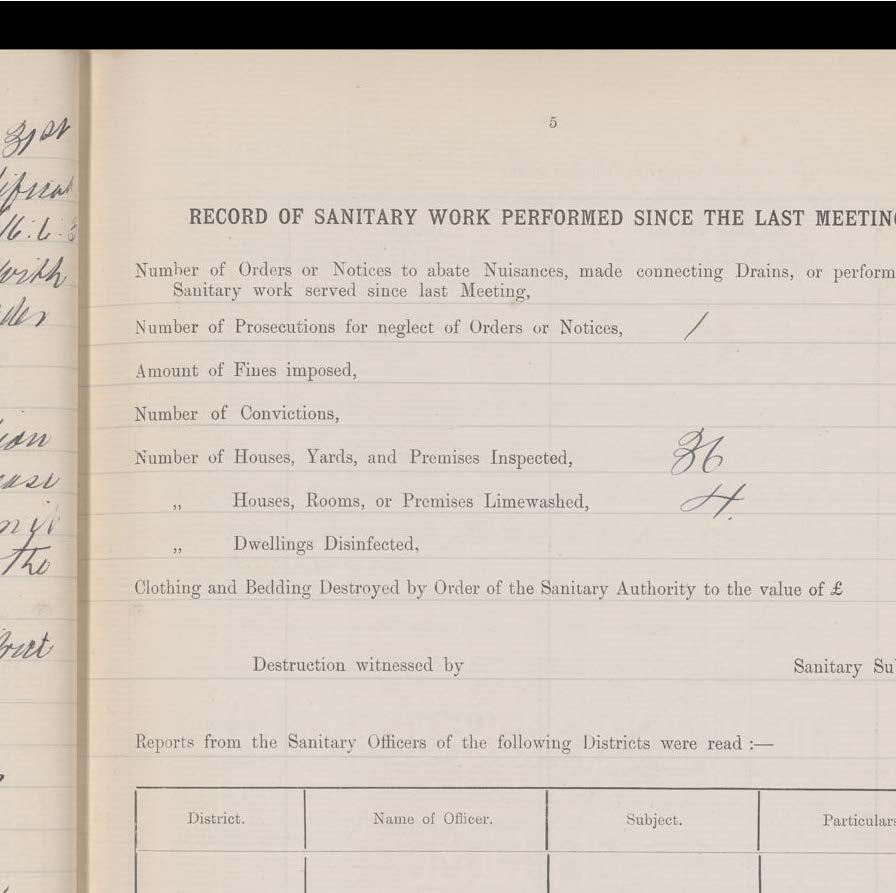 31st
with
the
5
RECORD OF SANITARY WORK PERFORMED SINCE THE LAST MEETIN
Number of Orders or Notices to abate Nuisances, made connecting Drains, or perform
Sanitary work served since last Meeting,
Number of Prosecutions for neglect of Orders or Notices, /
Amount of Fines imposed,
Number of Convictions,
Number of Houses, Yards, and Premises Inspected, 36
„ Houses, Rooms, or Premises Limewashed, 4.
„ Dwellings Disinfected,
Clothing and Bedding Destroyed by Order of the Sanitary Authority to the value of £
Destruction witnessed by Sanitary Su
Reports from the Sanitary Officers of the following Districts were read :—
District. Name of Officer. Subject. Particulars